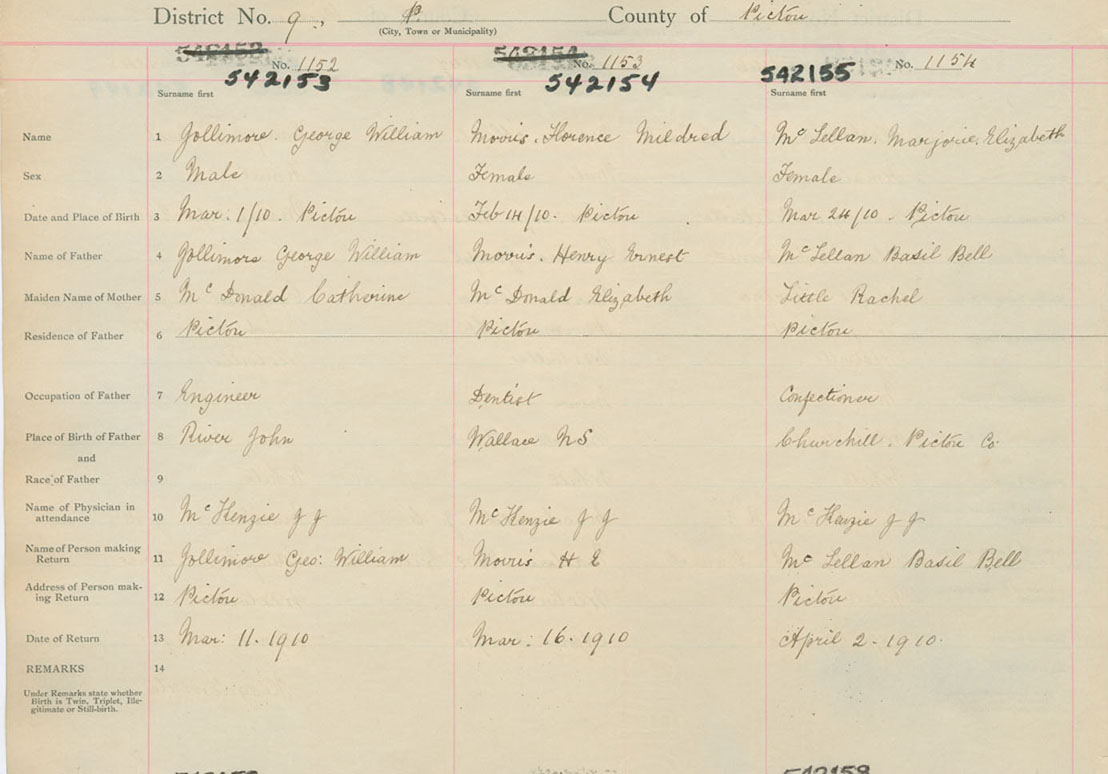 District No. 9, P. County of Pictou
(City, Town or Municipality)
No. 1152 No. 1153 No. 1154
542153 542154 542155
Surname first Surname first Surname first
Name 1 Jollimore. George William Morris. Florence Mildred McLellan. Marjorie. Elizabeth
Sex 2 Male Female Female
Date and Place of Birth 3 Mar. 1/10. Pictou Feb 14/10. Pictou Mar 24/10. Pictou
Name of Father 4 Jollimore George William Morris. Henry Ernest McLellan Basil Bell
Maiden Name of Mother 5 McDonald Catherine McDonald Elizabeth Little Rachel
Residence of Father 6 Pictou Pictou Pictou
Occupation of Father 7 Engineer Dentist Confectioner
Place of Birth of Father 8 River John Wallace NS Churchill. Pictou Co.
and
Race of Father 9
Name of Physician in
attendance 10 McKenzie J J McKenzie J J McKenzie J J
Name of Person making
Return 11 Jollimore Geo: William Morris H E McLellan Basil Bell
Address of Person mak-
ing Return 12 Pictou Pictou Pictou
Date of Return 13 Mar: 11. 1910 Mar: 16. 1910 April 2. 1910.
REMARKS 14
Under Remarks state whether
Birth is Twin, Triplet, Ille-
gitimate or Still-birth.